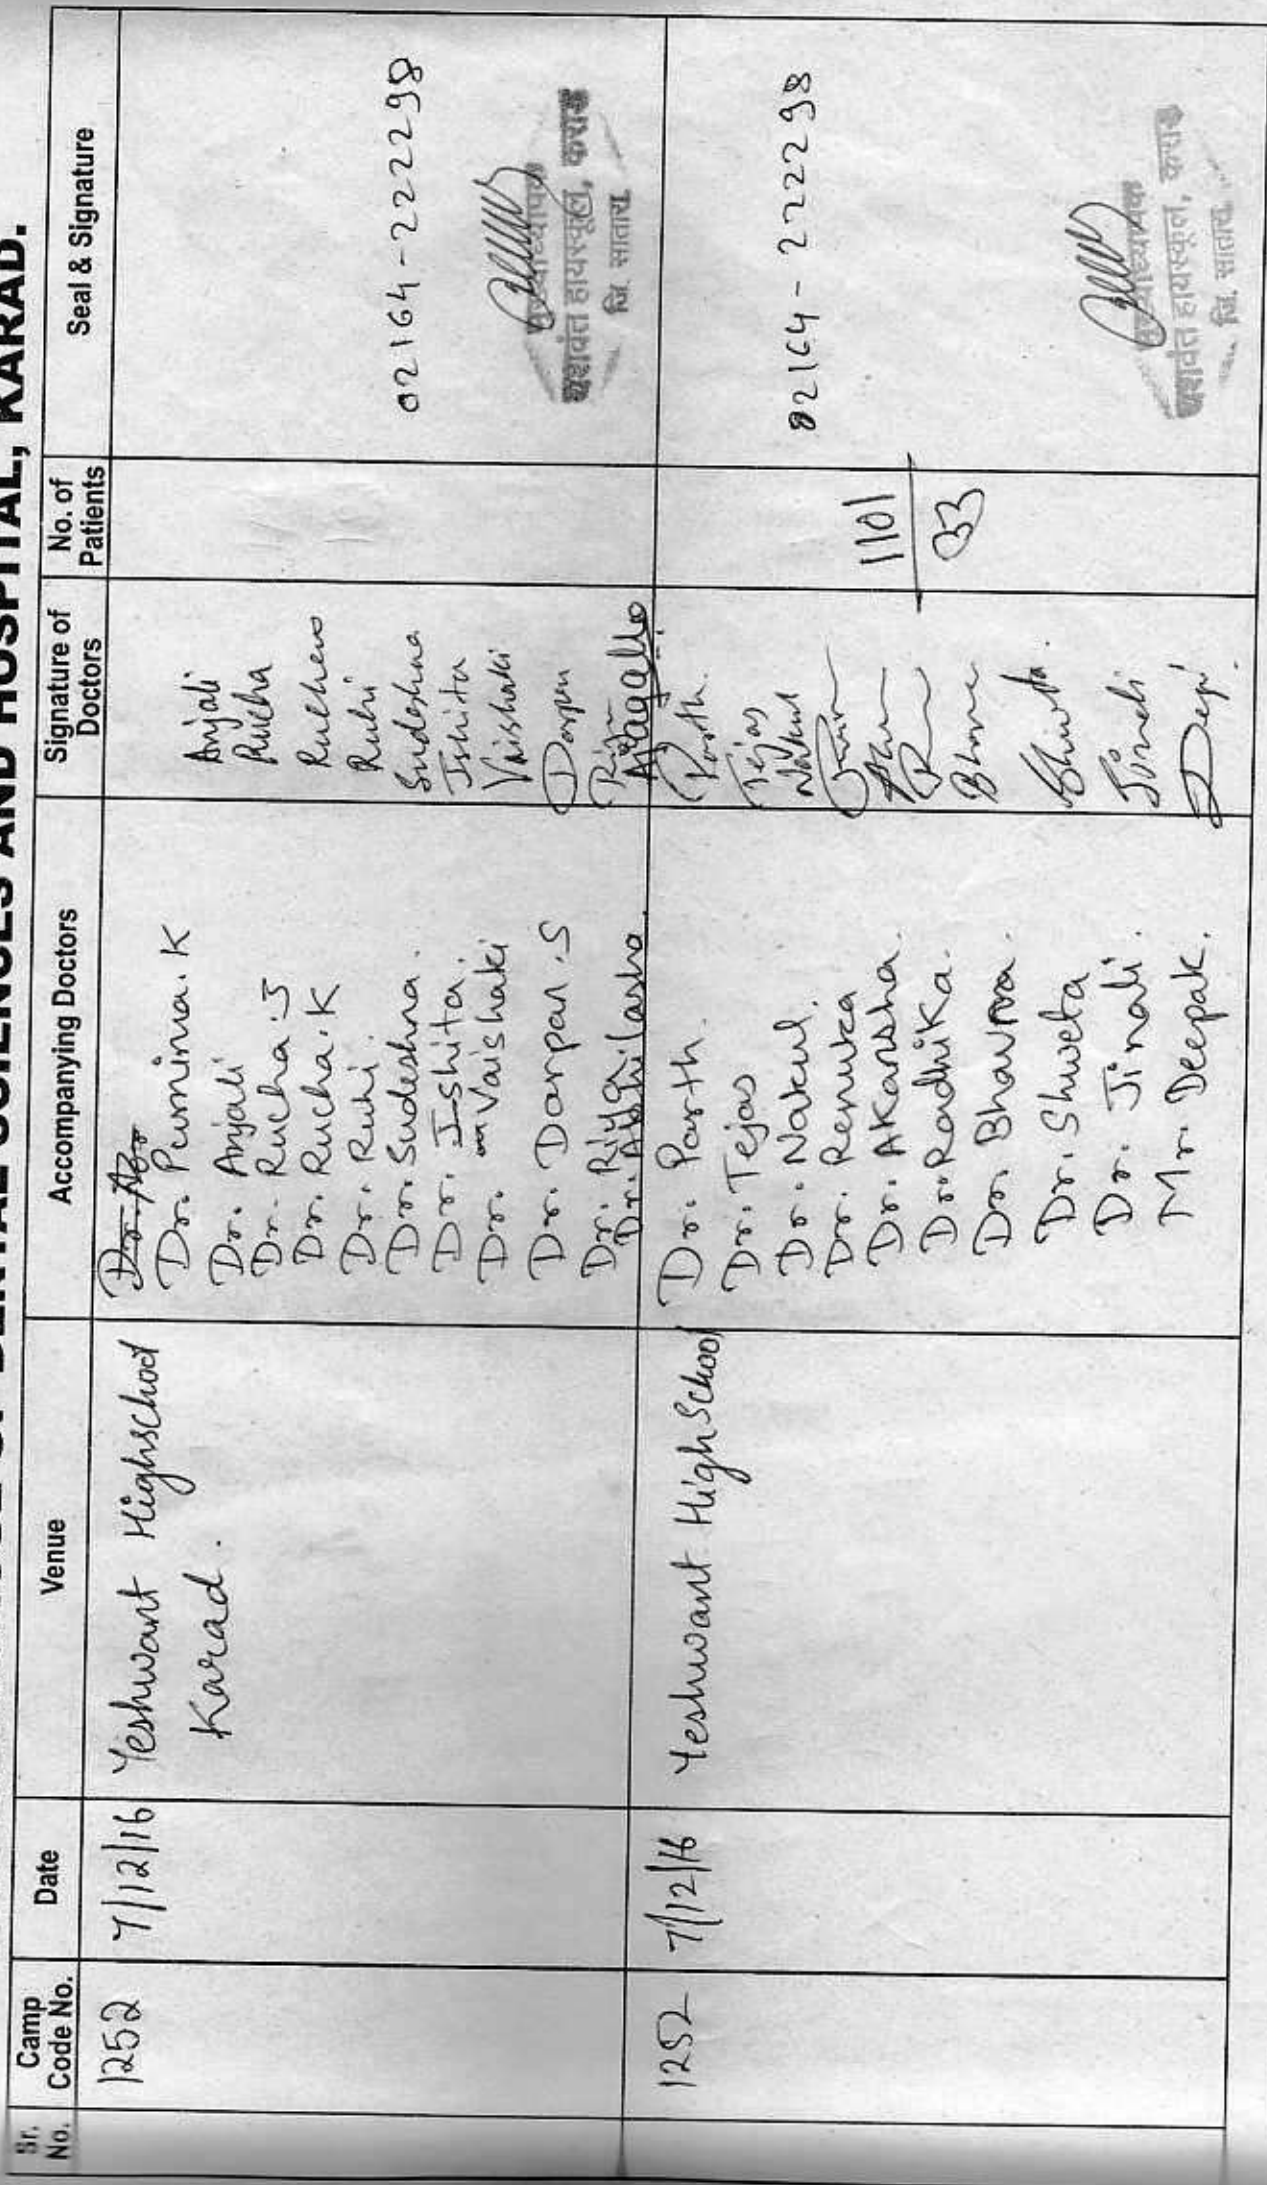 DENTAL SCIENCES AND HOSPITAL, KARAD.
Sr. No.
Camp Code No.
Date
Venue
Accompanying Doctors
Signature of Doctors
No. of Patients
Seal & Signature
1252
7/12/16
Yeshwant Highschool
Karad.
Dr. Purnima. K
Dr. Anjali
Dr. Rucha. J
Dr. Rucha. K
Dr. Ruhi.
Dr. Sudeshna.
Dr. Ishita.
Dr. Vaishaki
Dr. Darpan. S
Dr. Riya
Dr. Abhilasha.
Anjali
Rucha
Ruhi
Sudeshna
Ishita
Vaishaki
02164-222298
यशवंत हायस्कूल, कराड
जि. सातारा
1252
7/12/16
Yeshwant High School
Dr. Parth.
Dr. Tejas
Dr. Nakul.
Dr. Renuka
Dr. Akansha.
Dr. Radhika.
Dr. Bhavna.
Dr. Shweta
Dr. Jinali.
Mr. Deepak.
Parth.
Tejas
Nakul
Shweta.
Jinali
1101
33
02164-222298
मुख्याध्यापक
यशवंत हायस्कूल, कराड
जि. सातारा